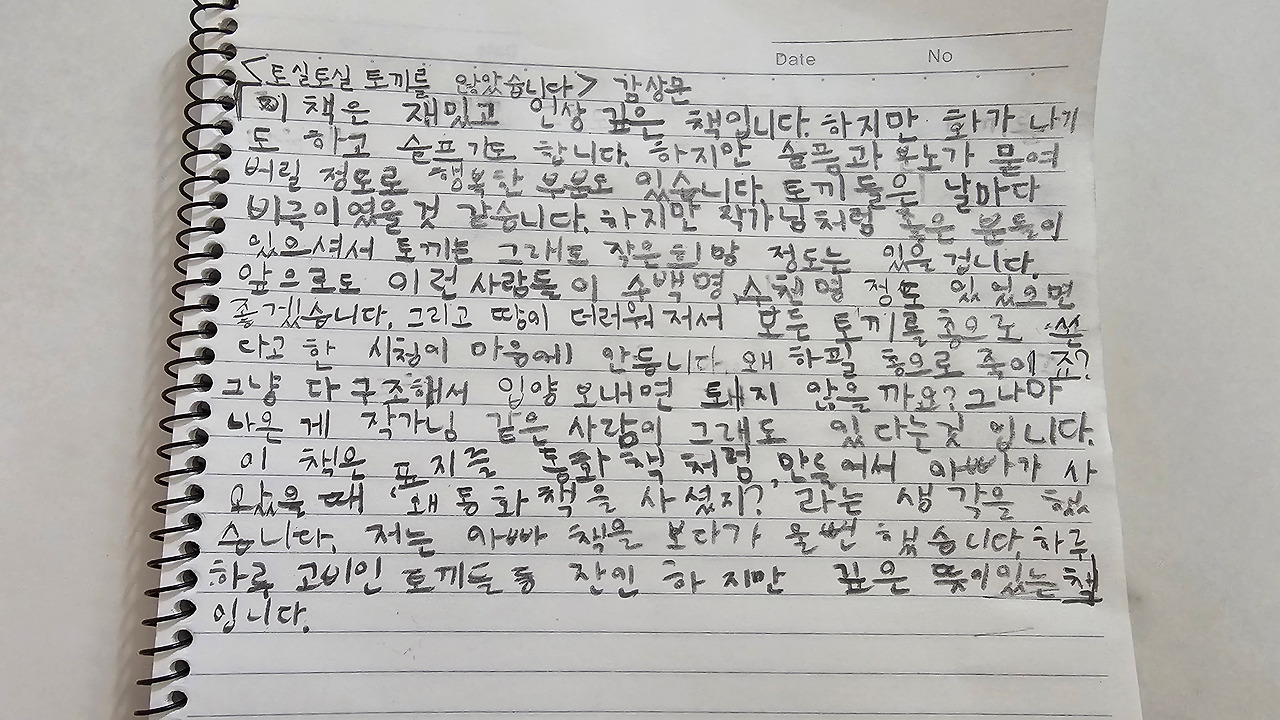 Date No
<토실토실 토끼를 않았습니다> 감상문
이 책은 재밌고 인상 깊은 책입니다. 하지만 화가 나기
도 하고 슬프기도 합니다. 하지만 슬픔과 분노가 묻여
버릴 정도로 행복한 부분도 있습니다. 토끼들은 날마다
비극이였을 것 같습니다. 하지만 작가님처럼 좋은 분들이
있으셔서 토끼는 그래도 작은 희망 정도는 있을 겁니다.
앞으로도 이런 사람들이 수백명, 수천명 정도 있었으면
좋겠습니다. 그리고 땅이 더러워져서 모든 토끼를 총으로 쏜
다고 한 시청이 마음에 안듭니다. 왜 하필 총으로 죽이죠?
그냥 다 구조해서 입양 보내면 돼지 않을까요? 그나마
나은 게 작가님 같은 사람이 그래도 있다는것 입니다.
이 책은 표지를 동화책 처럼 만들어서 아빠가 사
오았을 때 '왜 동화책을 사셨지?' 라는 생각을 했
습니다. 저는 아빠 책을 보다가 울뻔 했습니다. 하루
하루 고비인 토끼들 잔인 하지만 깊은 뜻이있는 책
입니다.